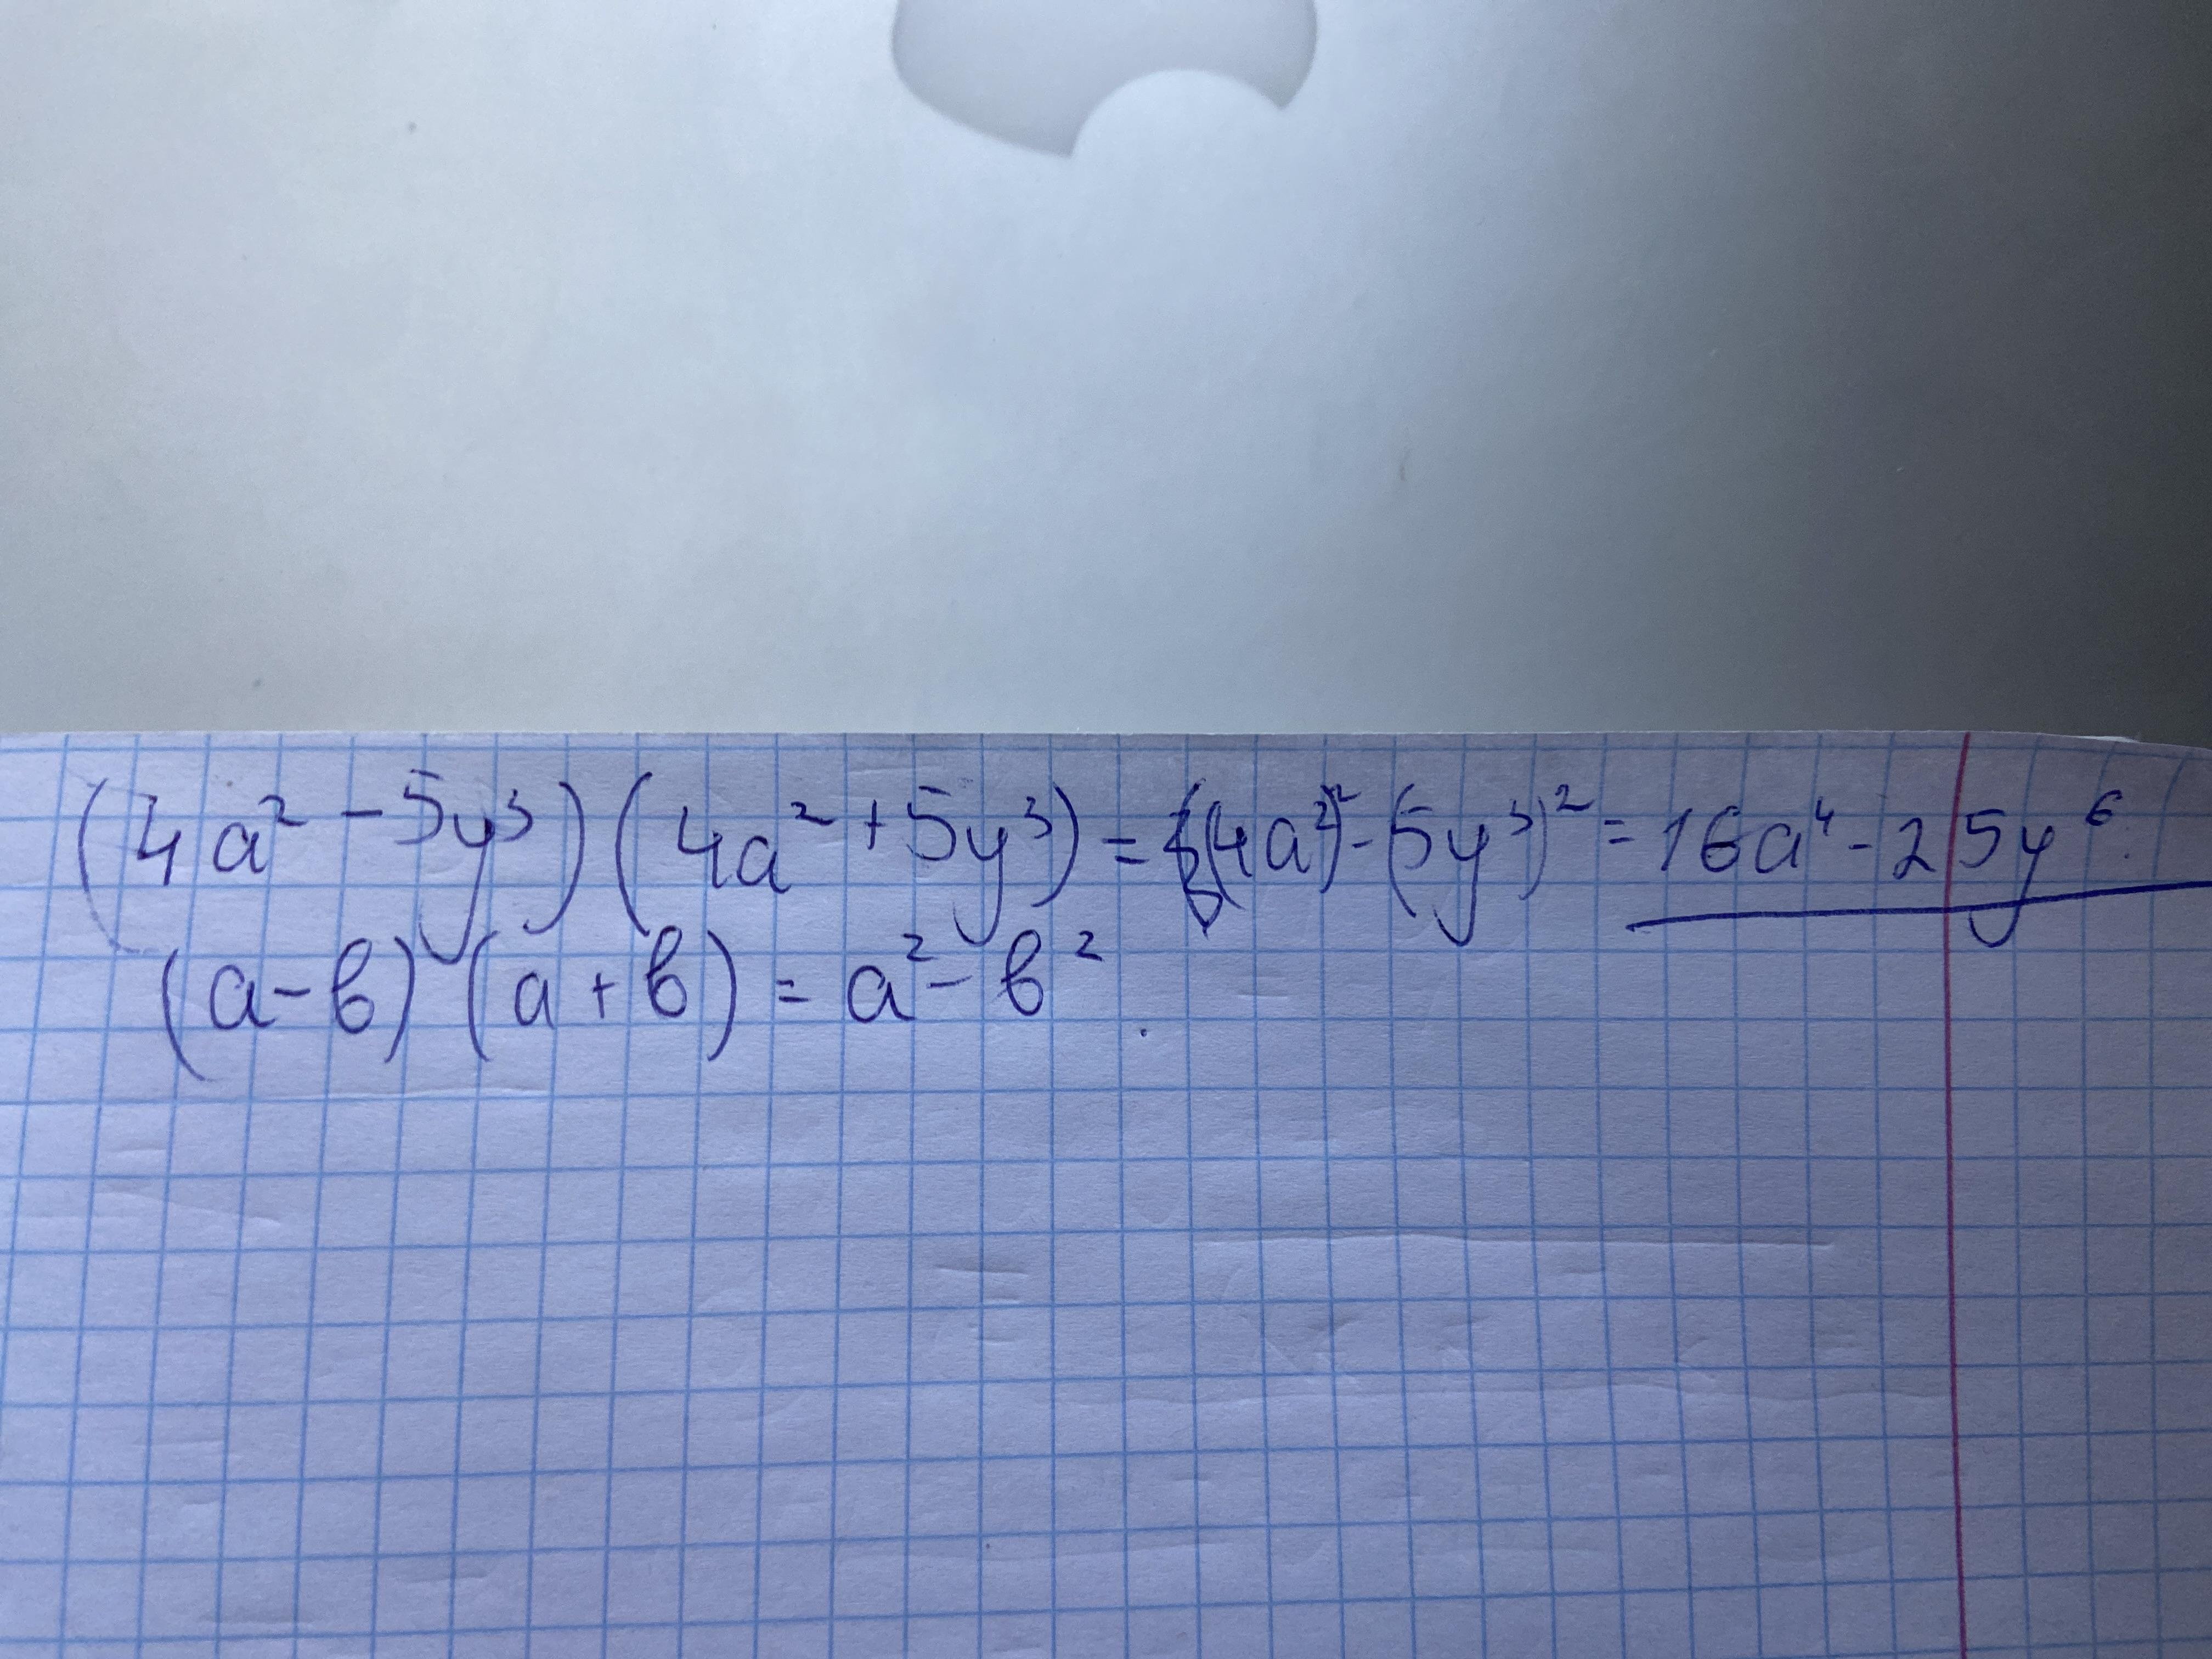 (4a² - 5y³)(4a² + 5y³) = (4a²)² - (5y³)² = 16a⁴ - 25y⁶.
(a - в)(a + в) = a² - в².